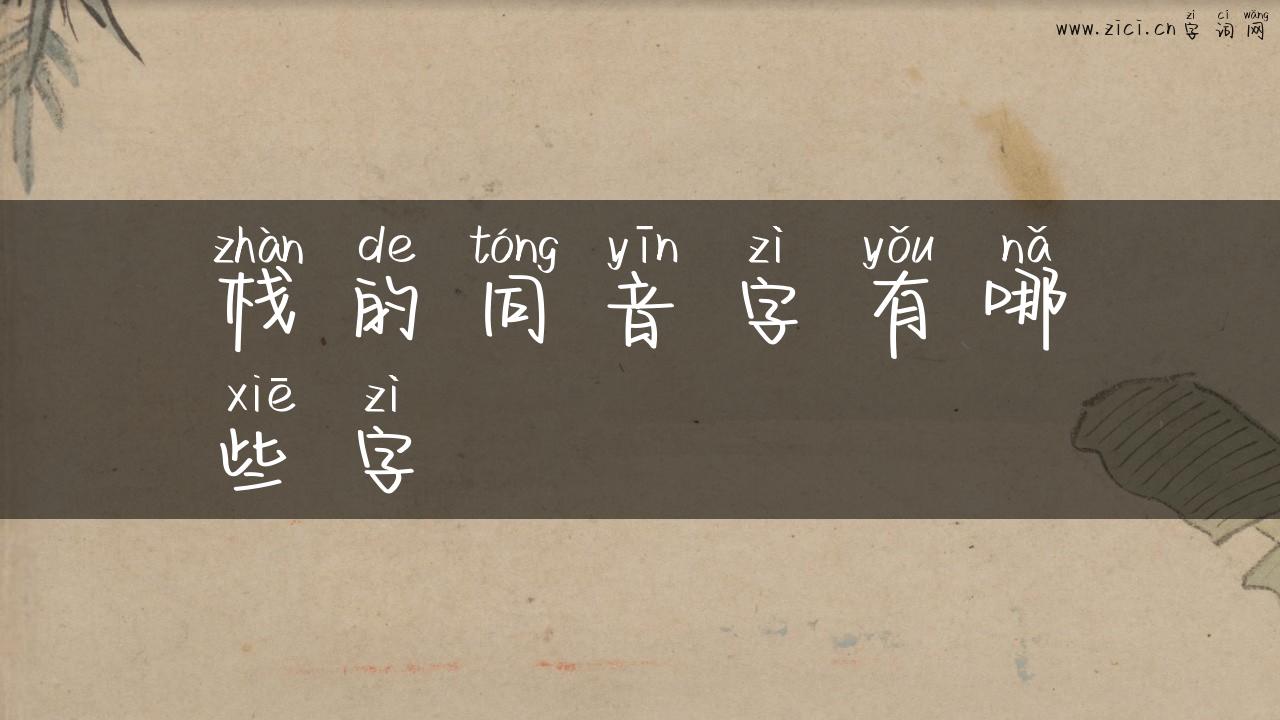 zì cí wǎng
www.zici.cn 字 词 网
zhàn de tóng yīn zì yǒu nǎ
栈 的 同 音 字 有 哪
xiē zì
些 字